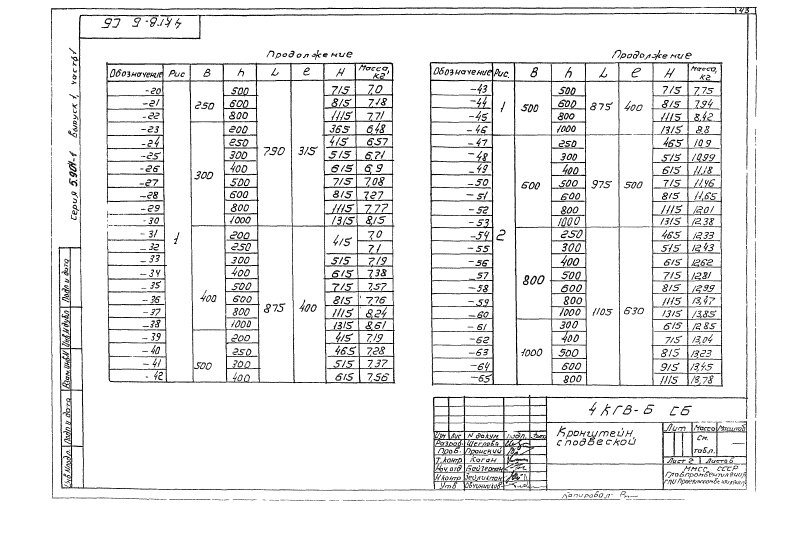 43
4КГВ-Б СБ
Серия 5.904-1 Выпуск 1, часть 1
Продолжение
Обозначение Рис В h L e H Масса, кг
-20 1 250 500 790 315 715 7,0
-21 600 815 7,18
-22 800 1115 7,71
-23 300 200 365 6,48
-24 250 415 6,57
-25 300 515 6,71
-26 400 615 6,9
-27 500 715 7,08
-28 600 815 7,27
-29 800 1115 7,77
-30 1000 1315 8,15
-31 400 200 875 400 415 7,0
-32 250 7,1
-33 300 515 7,19
-34 400 615 7,38
-35 500 715 7,57
-36 600 815 7,76
-37 800 1115 8,24
-38 1000 1315 8,61
-39 500 200 415 7,19
-40 250 465 7,28
-41 300 515 7,37
-42 400 615 7,56
Продолжение
Обозначение Рис. В h L e H Масса, кг
-43 1 500 500 875 400 715 7,75
-44 600 815 7,94
-45 800 1115 8,42
-46 1000 1315 8,8
-47 2 600 250 975 500 465 10,9
-48 300 515 10,99
-49 400 615 11,18
-50 500 715 11,46
-51 600 815 11,65
-52 800 1115 12,01
-53 1000 1315 12,38
-54 800 250 1105 630 465 12,33
-55 300 515 12,43
-56 400 615 12,62
-57 500 715 12,81
-58 600 815 12,99
-59 800 1115 13,47
-60 1000 1315 13,85
-61 1000 300 615 12,85
-62 400 715 13,04
-63 500 815 13,23
-64 600 915 13,45
-65 800 1115 13,78
4КГВ-Б СБ
Изм Лис N докум Подп. Дата
Разраб. Щеглова
Пров. Пронский
Т.контр Коган
Нач.отд
Н.контр
Утв Овчинников
Кронштейн
с подвеской
Лит Масса Масштаб
См.
табл.
—
Лист 2 Листов
ММСС СССР
Главпромвентиляция
ГПИ Проектпромвентиляция
Копировал:
Инв.№подл. Подп и дата
Взам.инв.№ Инв.№дубл. Подп и дата